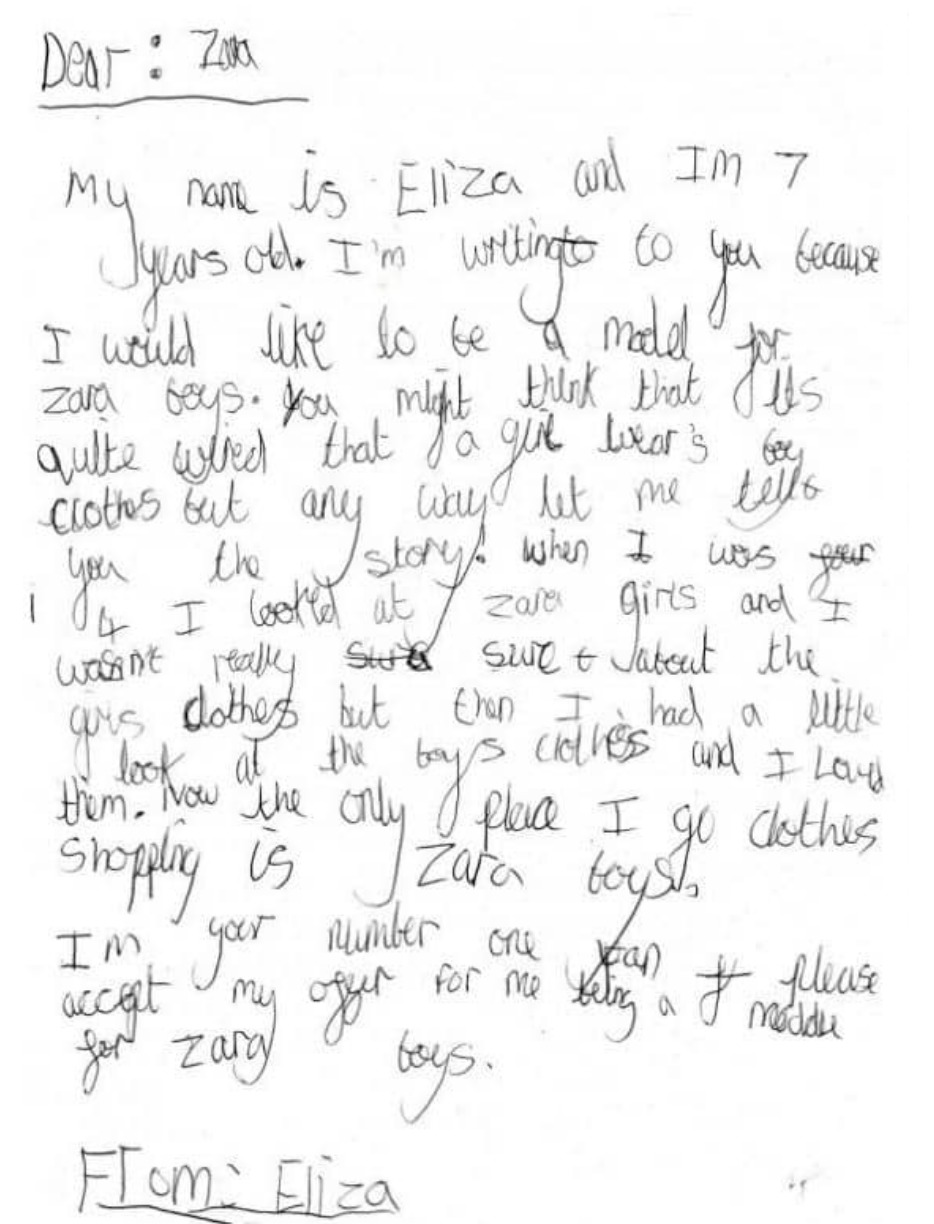 Dear: Zara
My name is Eliza and Im 7
years old. I'm writing to you because
I would like to be a model for
zara boys. you might think that its
quite wired that a girl wear's boy
clothes but any way let me tell
you the story. when I was
4 I looked at zara girls and I
wasn't really sure about the
girls clothes but then I had a little
look at the boys clothes and I Loved
them. Now the only place I go clothes
shopping is Zara boys.
Im your number one Fan please
accept my offer for me being a moddle
for zara boys.
From: Eliza